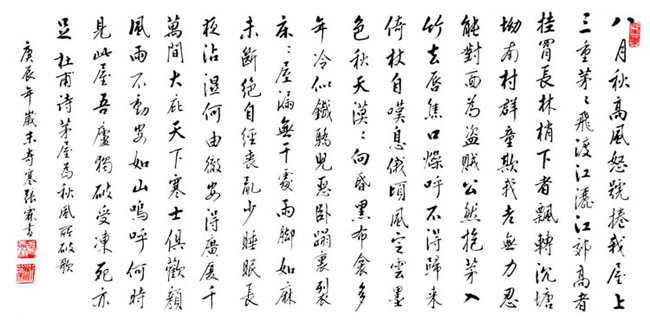 八月秋高風怒號捲我屋上
三重茅〻飛渡江灑江郊高者
挂罥長林梢下者飄轉沉塘
坳南村群童欺我老無力忍
能對面為盜賊公然抱茅入
竹去唇焦口燥呼不得歸来
倚杖自嘆息俄頃風定雲墨
色秋天漠〻向昏黑布衾多
年冷似鐵驕兒惡卧蹋裏裂
床〻屋漏無干處雨脚如麻
未斷絕自經喪亂少睡眠長
夜沾濕何由徹安得廣厦千
萬間大庇天下寒士俱歡顏
風雨不動安如山嗚呼何時
見此屋吾廬獨破受凍死亦
足 杜甫詩茅屋為秋風所破歌
庚辰年歲末奇寒張霖書